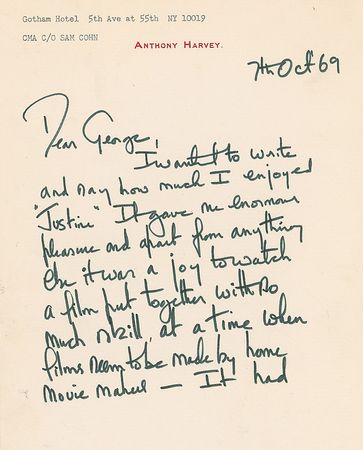 Gotham Hotel 5th Ave at 55th NY 10019
CMA C/O SAM COHN
ANTHONY HARVEY.
7th Oct 69
Dear George,
I wanted to write
and say how much I enjoyed
"Justine" It gave me enormous
pleasure and apart from anything
else it was a joy to watch
a film put together with so
much skill, at a time when
films seem to be made by home
movie makers — It had